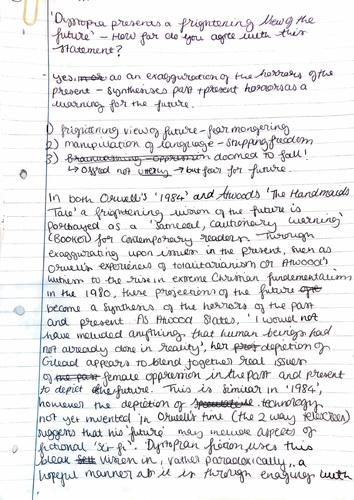 'Dystopia presents a frightening view of the
future' - How far do you agree with this
statement?
- yes as an exaggeration of the horrors of the
present - synthesises past + present horrors as a
warning for the future.
1) frightening view of future - fear mongering
2) manipulation of language - stripping freedom
3) brainwashing oppression doomed to fail!
↳ Ofred not utterly → but fear for future.
In both Orwell's '1984' and Atwoods 'The Handmaids
Tale' a frightening vision of the future is
portrayed as a cautionary warning'
(BOOKER) for contemporary readers. Through
exaggurating upon issues in the present, such as
Orwell's experiences of totalitarianism or Atwood's
witness to the rise in extreme Christian fundementalism
in the 1980, these projections of the future
become a synthesis of the horrors of the past
and present. As Atwood states, 'I would not
have included anything that human beings had
not already done in reality', her depiction of
Gilead appears to blend together real issues
of female oppression in the past and present
to depict the future. This is similar in '1984',
however the depiction of technology
not yet invented in Orwell's time (the 2 way telescreen)
suggests that his 'future' may include aspects of
fictional 'sci-fi'. Dystopian fiction uses this
bleak vision in, rather paradoxically, a
hopeful manner as it is through enaging with